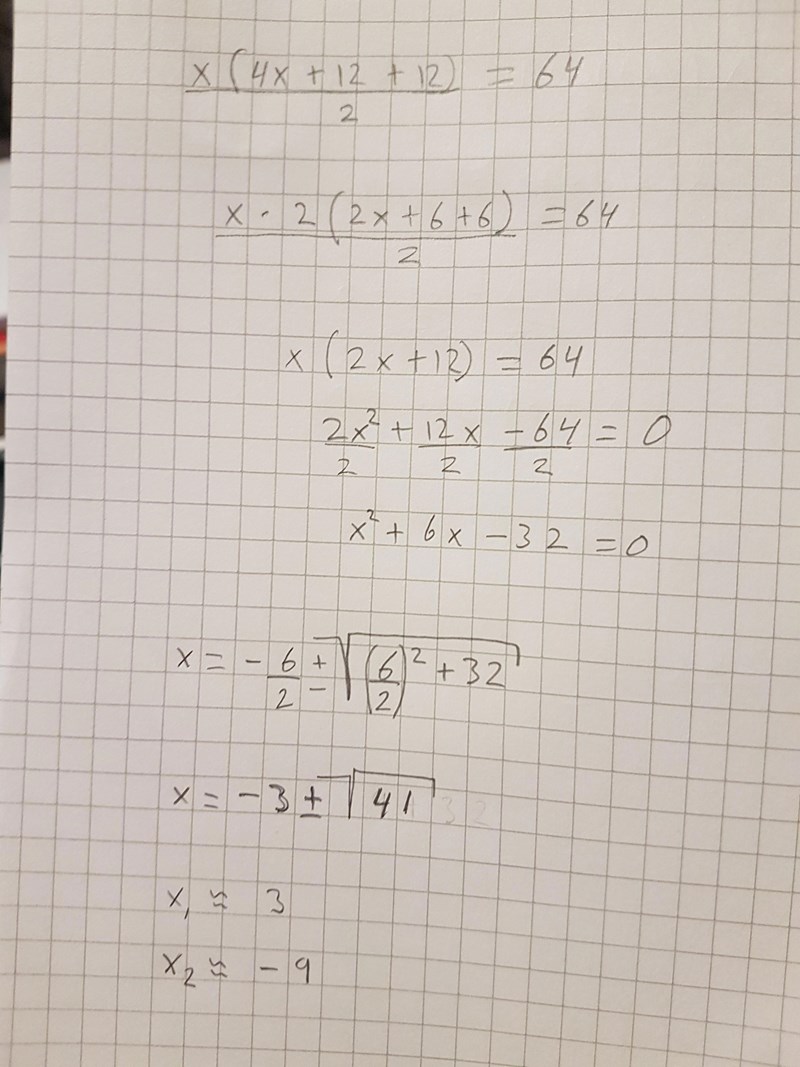 x(4x + 12 + 12) / 2 = 64
x · 2(2x + 6 + 6) / 2 = 64
x(2x + 12) = 64
2x²/2 + 12x/2 - 64/2 = 0
x² + 6x - 32 = 0
x = - 6/2 ± √((6/2)² + 32)
x = -3 ± √41
x₁ ≈ 3
x₂ ≈ -9